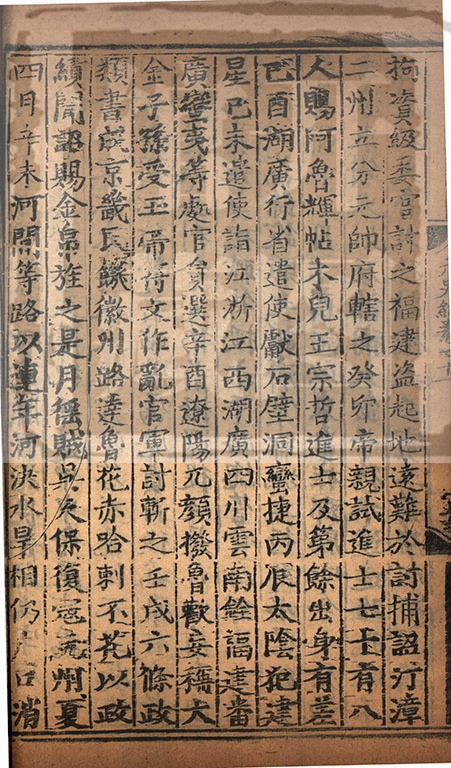 拘資級委官討之福建盗起地遠難於討捕詔汀漳
二州立分元帥府轄之癸卯帝親試進士七十有八
人賜阿魯輝帖木兒王宗哲進士及第餘出身有差
己酉湖廣行省遣使獻石壁洞蠻捷丙辰太陰犯建
星己未遣使詣江浙江西湖廣四川雲南銓福建番
廣蠻夷等處官負選辛酉遼陽兀顔撥魯歡妄稱大
金子孫受玉帝符文作亂官軍討斬之壬戌六條政
類書成京畿民饑徽州路達魯花赤哈剌不花以政
績聞詔賜金帛旌之是月猺賊吳天保復寇沅州夏
四月辛未河間等路以連年河决水旱相仍戶口消